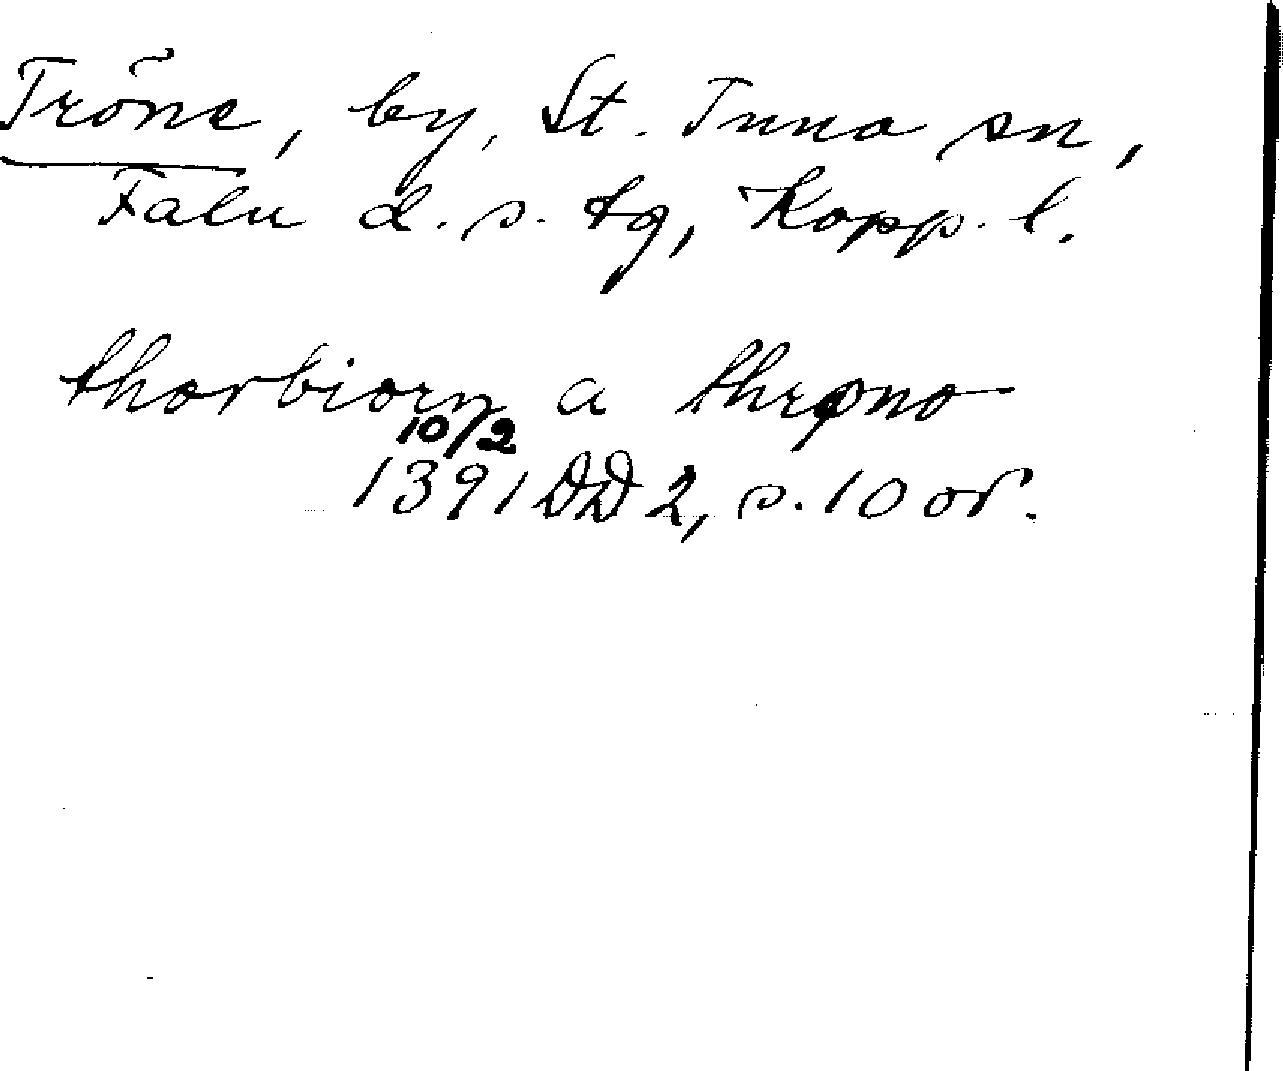 Tröne, by, St. Tuna sn,
Falu d. s. tg, Kopp. l.
thorbiorn a thrøno
10/2
1391 DD 2, s. 10 or.